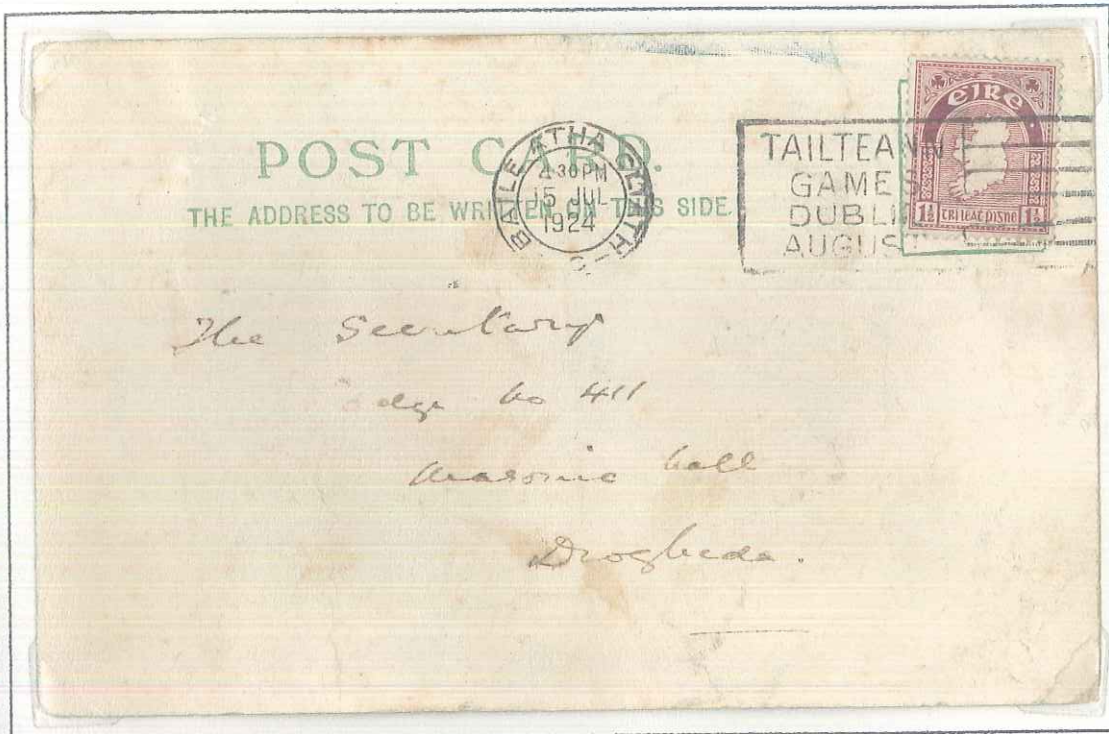 POST CARD.
THE ADDRESS TO BE WRITTEN ON THIS SIDE.
BAILE ATHA CLIATH
4 30 PM
15 JUL
1924
TAILTEANN
GAMES
DUBLIN
AUGUST
éire
1½ trí leat pisne 1½
The Secretary
odge No 411
Masonic Hall
Drogheda.